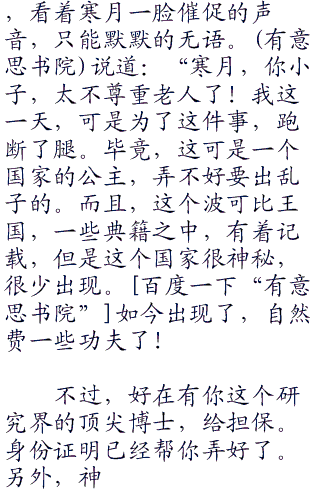 ，看着寒月一脸催促的声
音，只能默默的无语。(有意
思书院)说道：“寒月，你小
子，太不尊重老人了！我这
一天，可是为了这件事，跑
断了腿。毕竟，这可是一个
国家的公主，弄不好要出乱
子的。而且，这个波可比王
国，一些典籍之中，有着记
载，但是这个国家很神秘，
很少出现。[百度一下“有意
思书院”]如今出现了，自然
费一些功夫了！
不过，好在有你这个研
究界的顶尖博士，给担保。
身份证明已经帮你弄好了。
另外，神